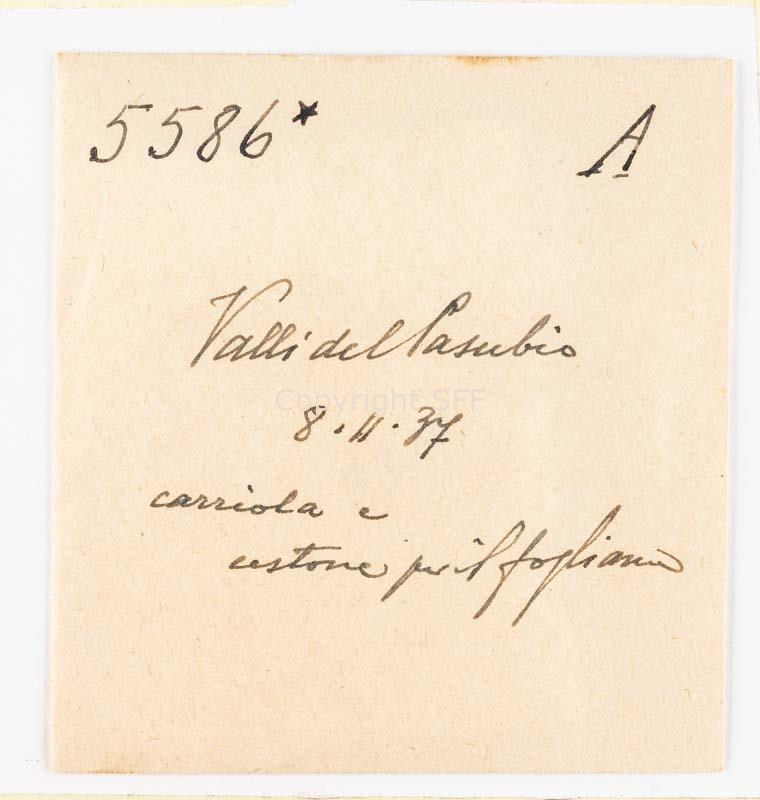 5586* A
Valli del Pasubio
Copyright SFF
8.11.37
carriola e
cestone per il fogliame